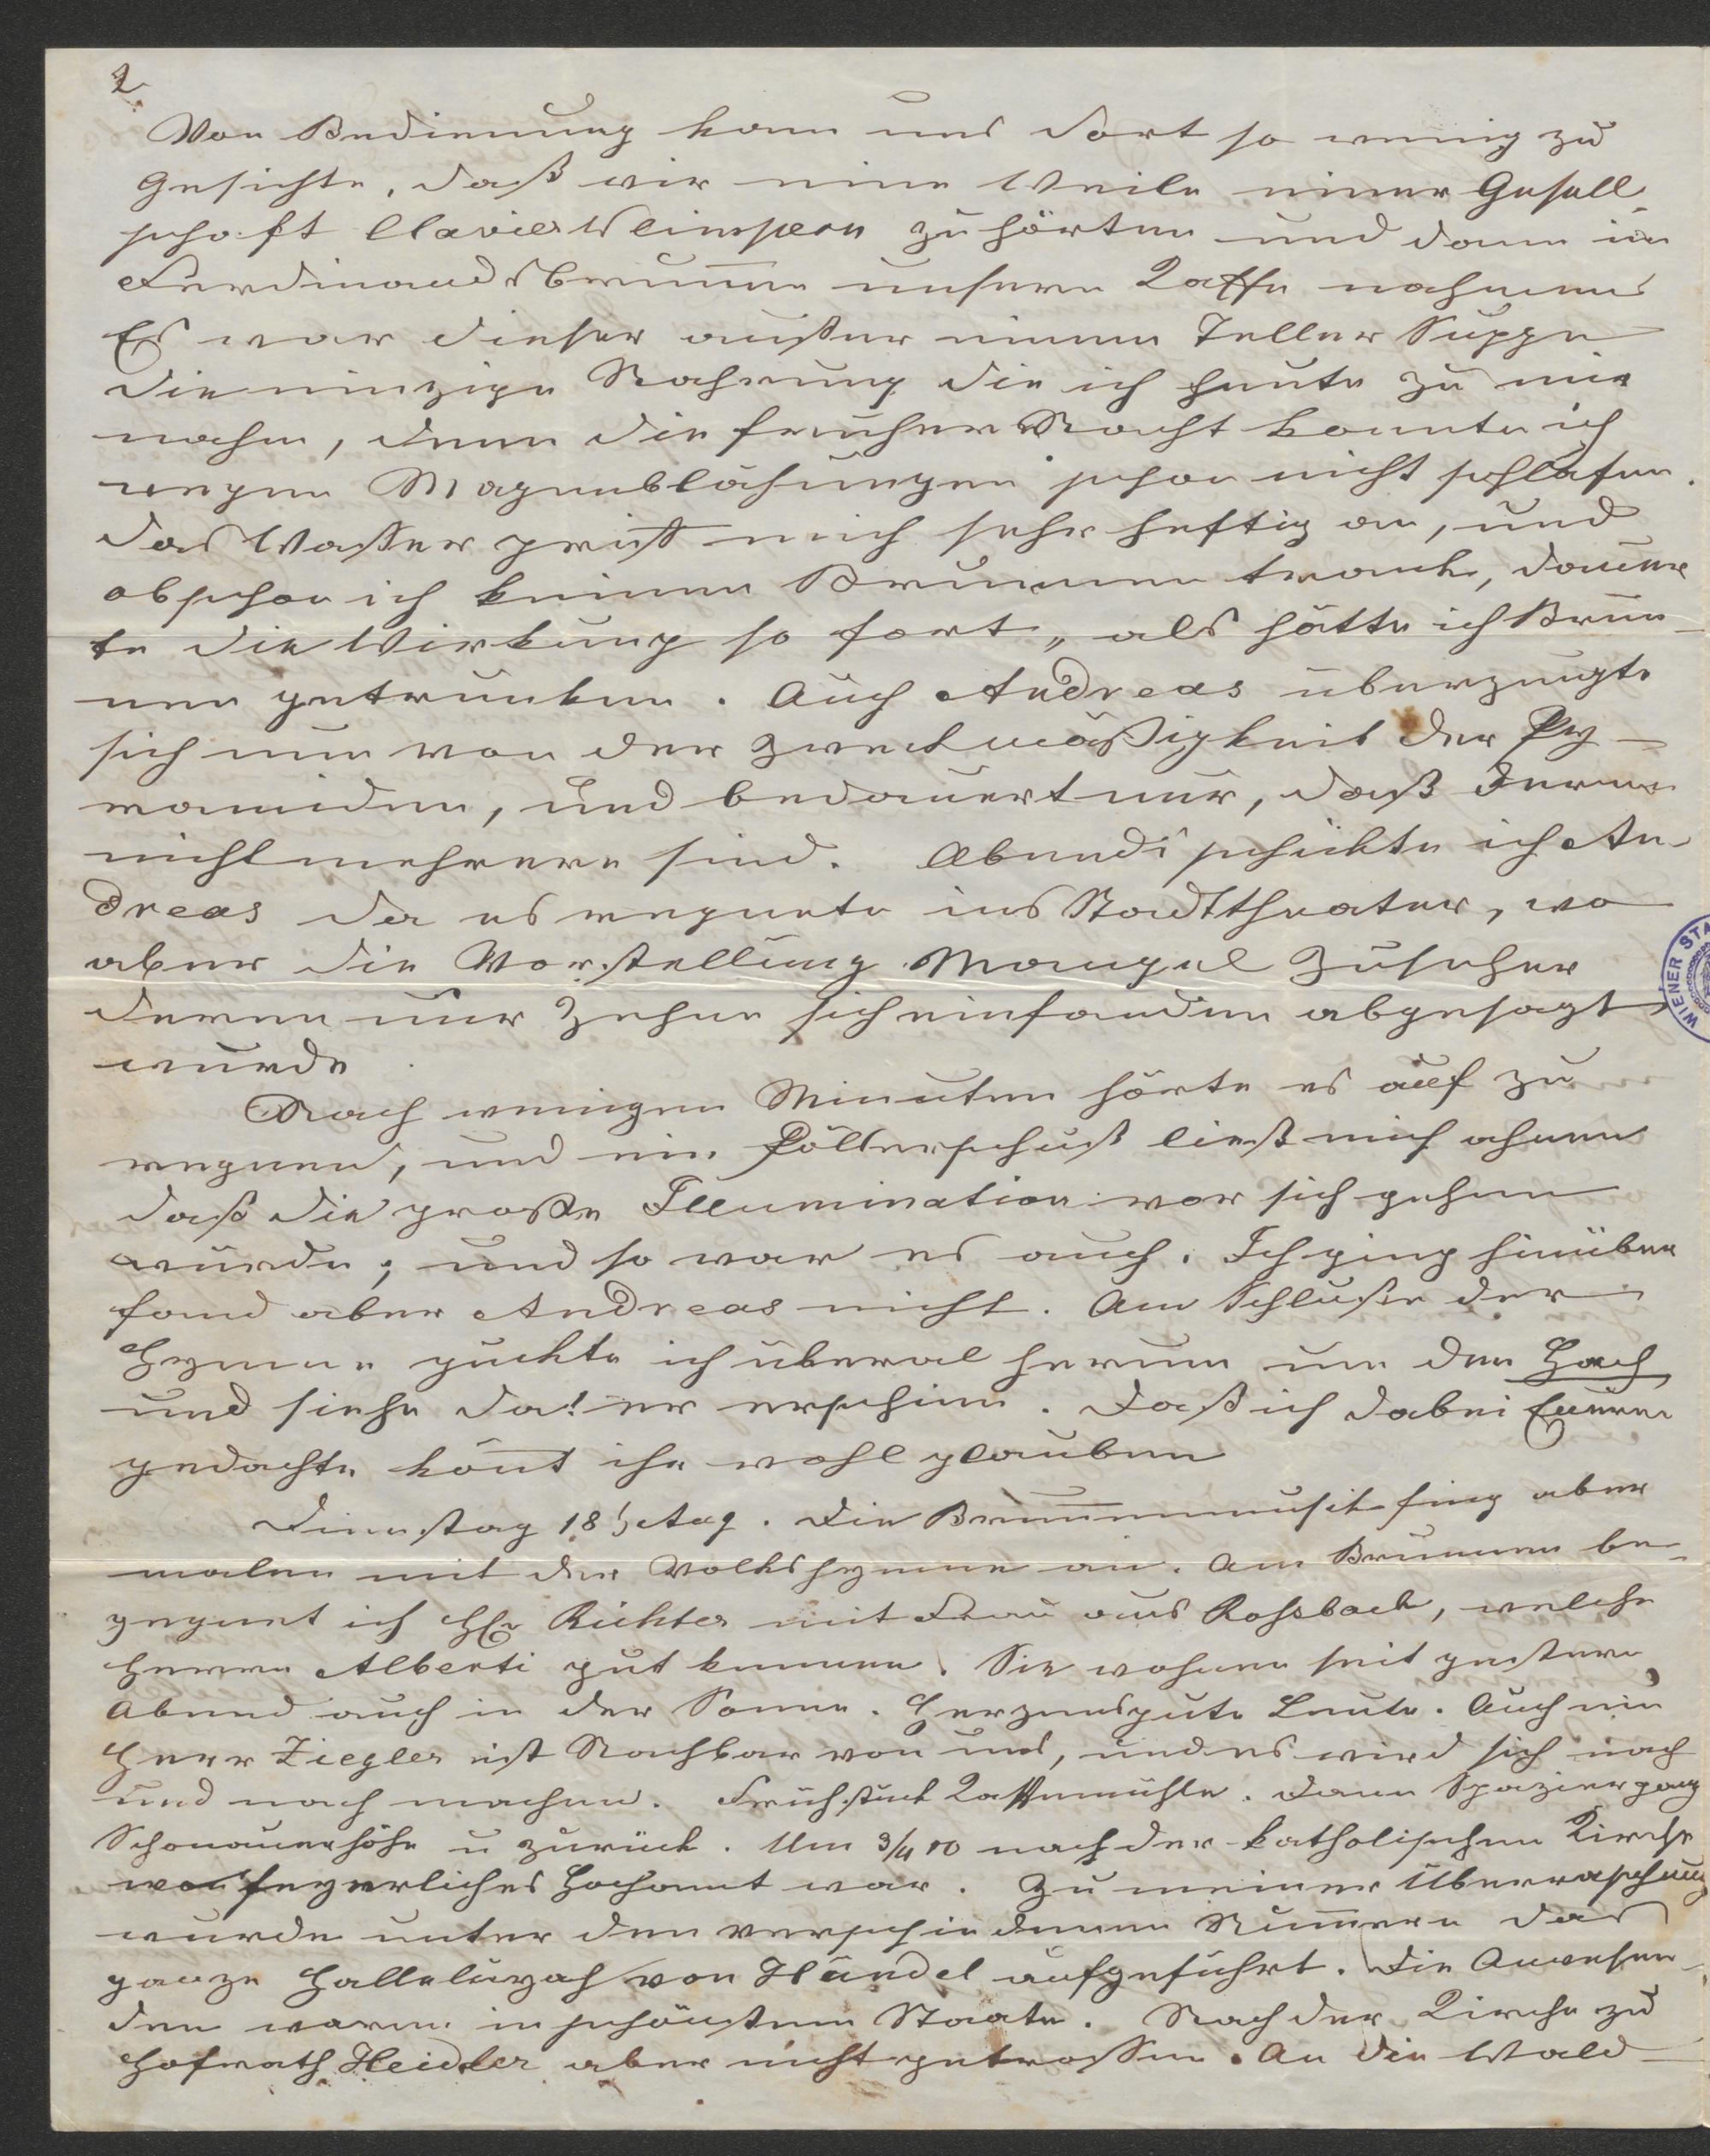 2
Von Bedienung kam uns dort so wenig zu
Gesichte, daß wir eine Weile einer Gesell-
schaft zuhörten und dann im
Ferdinandsbrunn̄en unsern Kaffe nahmen
Es war dieser außer einem Teller Suppe
die einzige Nahrung die ich heute zu mir
nahm, denn die frühere Nacht konnte ich
wegen Magenblähungen schon nicht schlafen.
das Wasser greift mich sehr heftig an, und
obschon ich keinen Brunnen trank, dauer
te die Wirkung so fort, als hätte ich Brun-
nen getrunken. Auch Andreas überzeugte
sich nun von der Zweckmäßigkeit der Py-
ramiden, und bedauert nur, daß deren
nicht mehrere sind. Abends schickte ich An-
dreas da es regnete ins Stadttheater, wo
aber die Vorstellung Mangel Zuseher
deren nur Zehne sich einfanden abgesagt
wurde.
Nach wenigen Minuten hörte es auf zu
regnen, und ein Pöllerschuß ließ mich ahnen
daß die große Illumination vor sich gehen
würde; und so war es auch. Ich ging hinüber
fand aber Andreas nicht. Am Schluße der
Hymne guckte ich überal herum um den Hoch
und siehe da! er erschien. Daß ich dabei Eurer
gedachte kön̄t ihr wohl glauben
Dienstag 18 Aug. Die Brun̄enmusik fing aber
malen mit der Volkshymne an. Am Brunnen be-
gegnet ich H Richter mit Frau aus Rossbach, welche
Herrn Alberti gut kennen. Sie wohnen seit gestern
Abend auch in der Sonne. Herzensgute Leute. Auch ein
Herr Ziegler ist Nachbar von uns, und es wird sich nach
und nach machen. Frühstück Kaffemühle. Dann Spaziergang
Schönauerhöhe u zurück. Um 3/4 10 nach der katholischen Kirche
wo feyerliches Hochamt war. Zu meiner Überraschung
wurde unter den verschiedenen Num̄ern das
ganze Halleluyah von Händel aufgeführt. Die Anwesen-
den waren in schönstem Staate. Nach der Kirche zu
Hofrath Heidler aber nicht getroffen. An die Wald-
WIENER STA